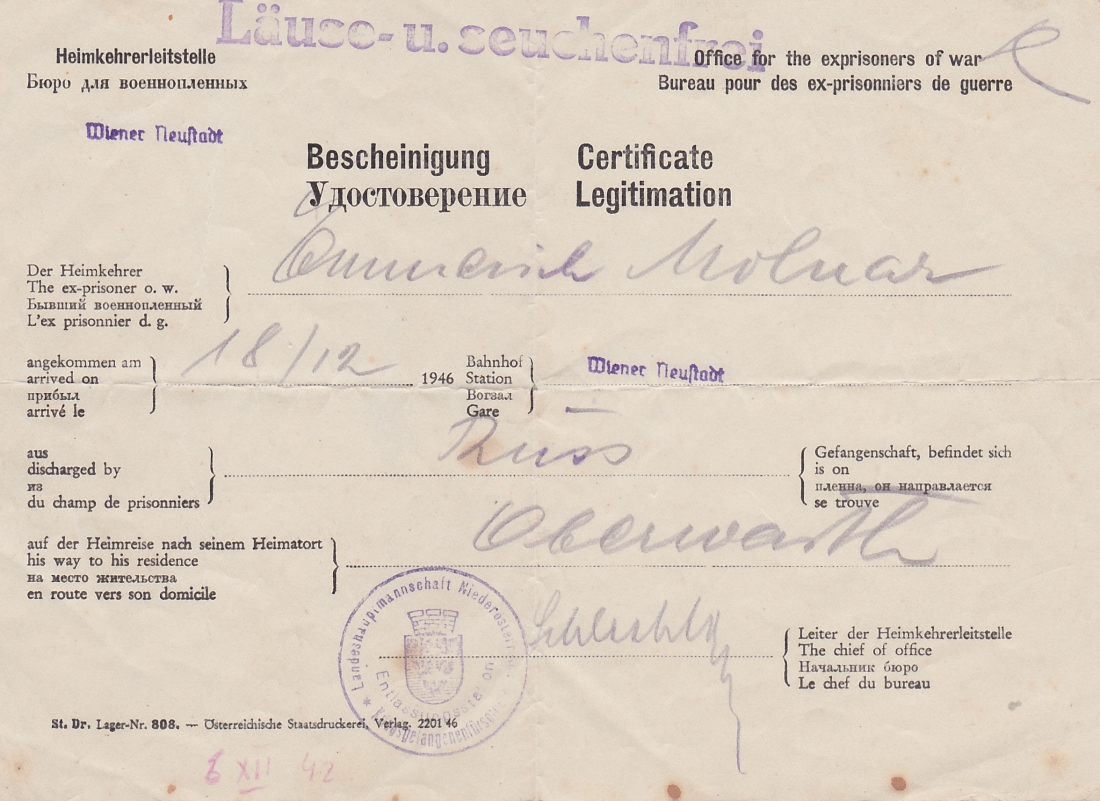 Läuse- u. seuchenfrei
Heimkehrerleitstelle
Бюро для военнопленных
Office for the exprisoners of war
Bureau pour des ex-prisonniers de guerre
Wiener Neustadt
Bescheinigung
Удостоверение
Certificate
Legitimation
Der Heimkehrer
The ex-prisoner o. w.
Бывший военнопленный
L'ex prisonnier d. g.
Emmerich Molnar
angekommen am
arrived on
прибыл
arrivé le
18/12
1946
Bahnhof
Station
Вогзал
Gare
Wiener Neustadt
aus
discharged by
из
du champ de prisonniers
Russ
Gefangenschaft, befindet sich
is on
пленна, он направлается
se trouve
auf der Heimreise nach seinem Heimatort
his way to his residence
на место жительства
en route vers son domicile
Oberwarth
Landeshauptmannschaft Niederösterreich
Entlassungsstelle
Leiter der Heimkehrerleitstelle
The chief of office
Начальник бюро
Le chef du bureau
St. Dr. Lager-Nr. 808. — Österreichische Staatsdruckerei, Verlag. 2201 46
XII 42